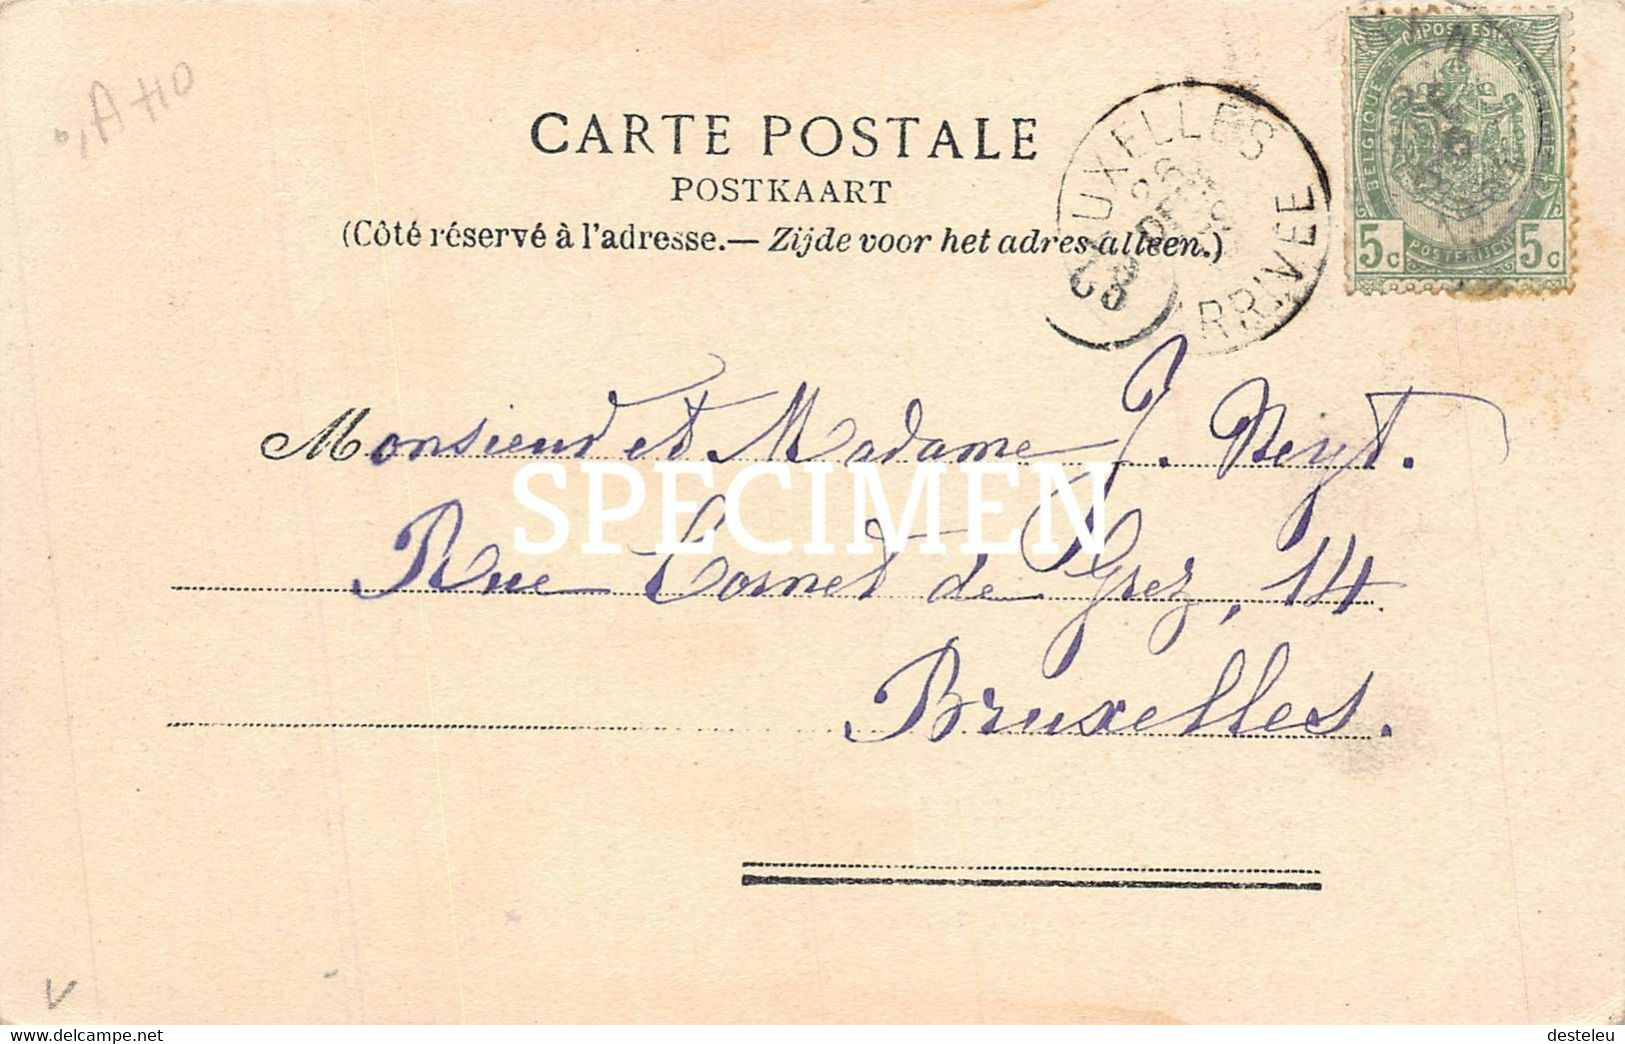 CARTE POSTALE
POSTKAART
(Côté réservé à l'adresse.— Zijde voor het adres alleen.)
BRUXELLES
ARRIVEE
BELGIQUE
POSTERIJEN
5c 5c
Monsieur et Madame J.
SPECIMEN
Rue Cornet de Grez, 14.
Bruxelles.
https://www.delcampe.net
desteleu